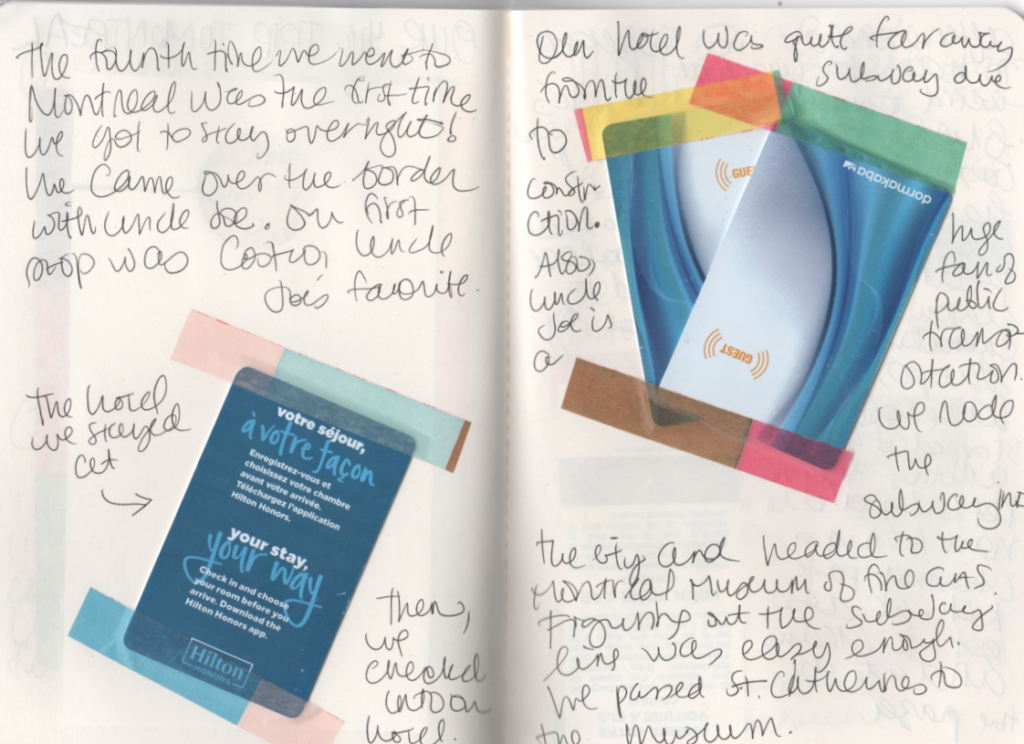 The fourth time we went to
Montreal was the first time
we got to stay overnight!
We came over the border
with uncle Joe. Our first
stop was Costco, Uncle
Joe's favorite.
the hotel
we stayed
at
votre séjour,
à votre façon
Enregistrez-vous et
choisissez votre chambre
avant votre arrivée.
Téléchargez l'application
Hilton Honors.
your stay,
your way
Check in and choose
your room before you
arrive. Download the
Hilton Honors app.
Hilton
HONORS
Then,
we
checked
into our
hotel.
Our hotel was quite far away
from the subway due
to
constr
ction.
Also,
uncle
Joe is
a
GUE
dormakaba
GUEST
huge
fan of
public
transp
ortation.
We rode
the
subway into
the city and headed to the
Montreal Museum of Fine Arts.
Figuring out the subway
line was easy enough.
We passed St. Catherines to
the museum.